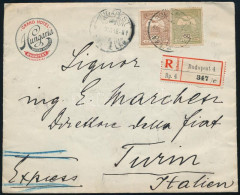 GRAND HOTEL
Hungaria
BUDAPEST
R
Budapest 4
347
Signor
ing. E. Marchesi
Direttore della Fiat
Turin
Italien
Express